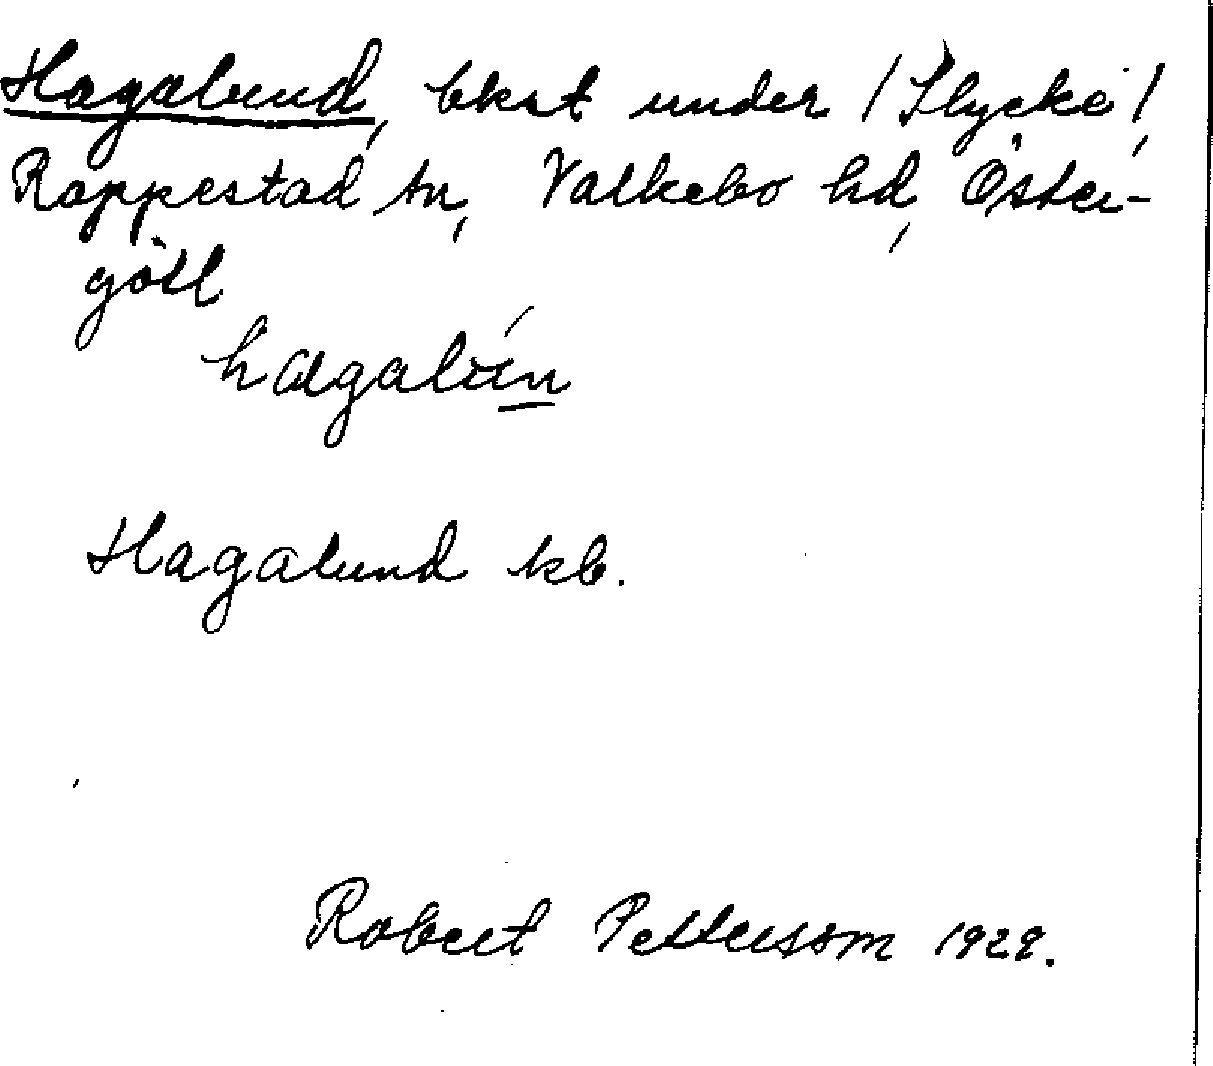 Hagalund, bkst under / Slycke /,
Rappestad sn, Valkebo hd, Öster-
götl
hagalún
Hagalund kb.
Robert Pettersson 1929.